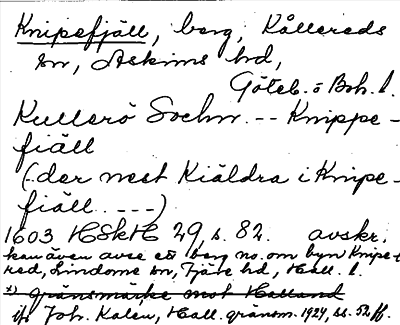 Knipefjäll, berg, Kållereds
sn, Askims hd,
Göteb. o Boh. l.
Kullerö Sochn. -- Knippe-
fiäll
(der nest Kiäldra i Knipe-
fiäll. ---)
1603 HSkH 29 s. 82. avskr.
kan även avse ett berg no. om byn Knipe-
red, Lindome sn, Fjäre hd, Hall. l.
x) gränsmärke mot Halland
jfr Joh. Kalén, Hall. gränsm. 1927, ss. 50 ff.